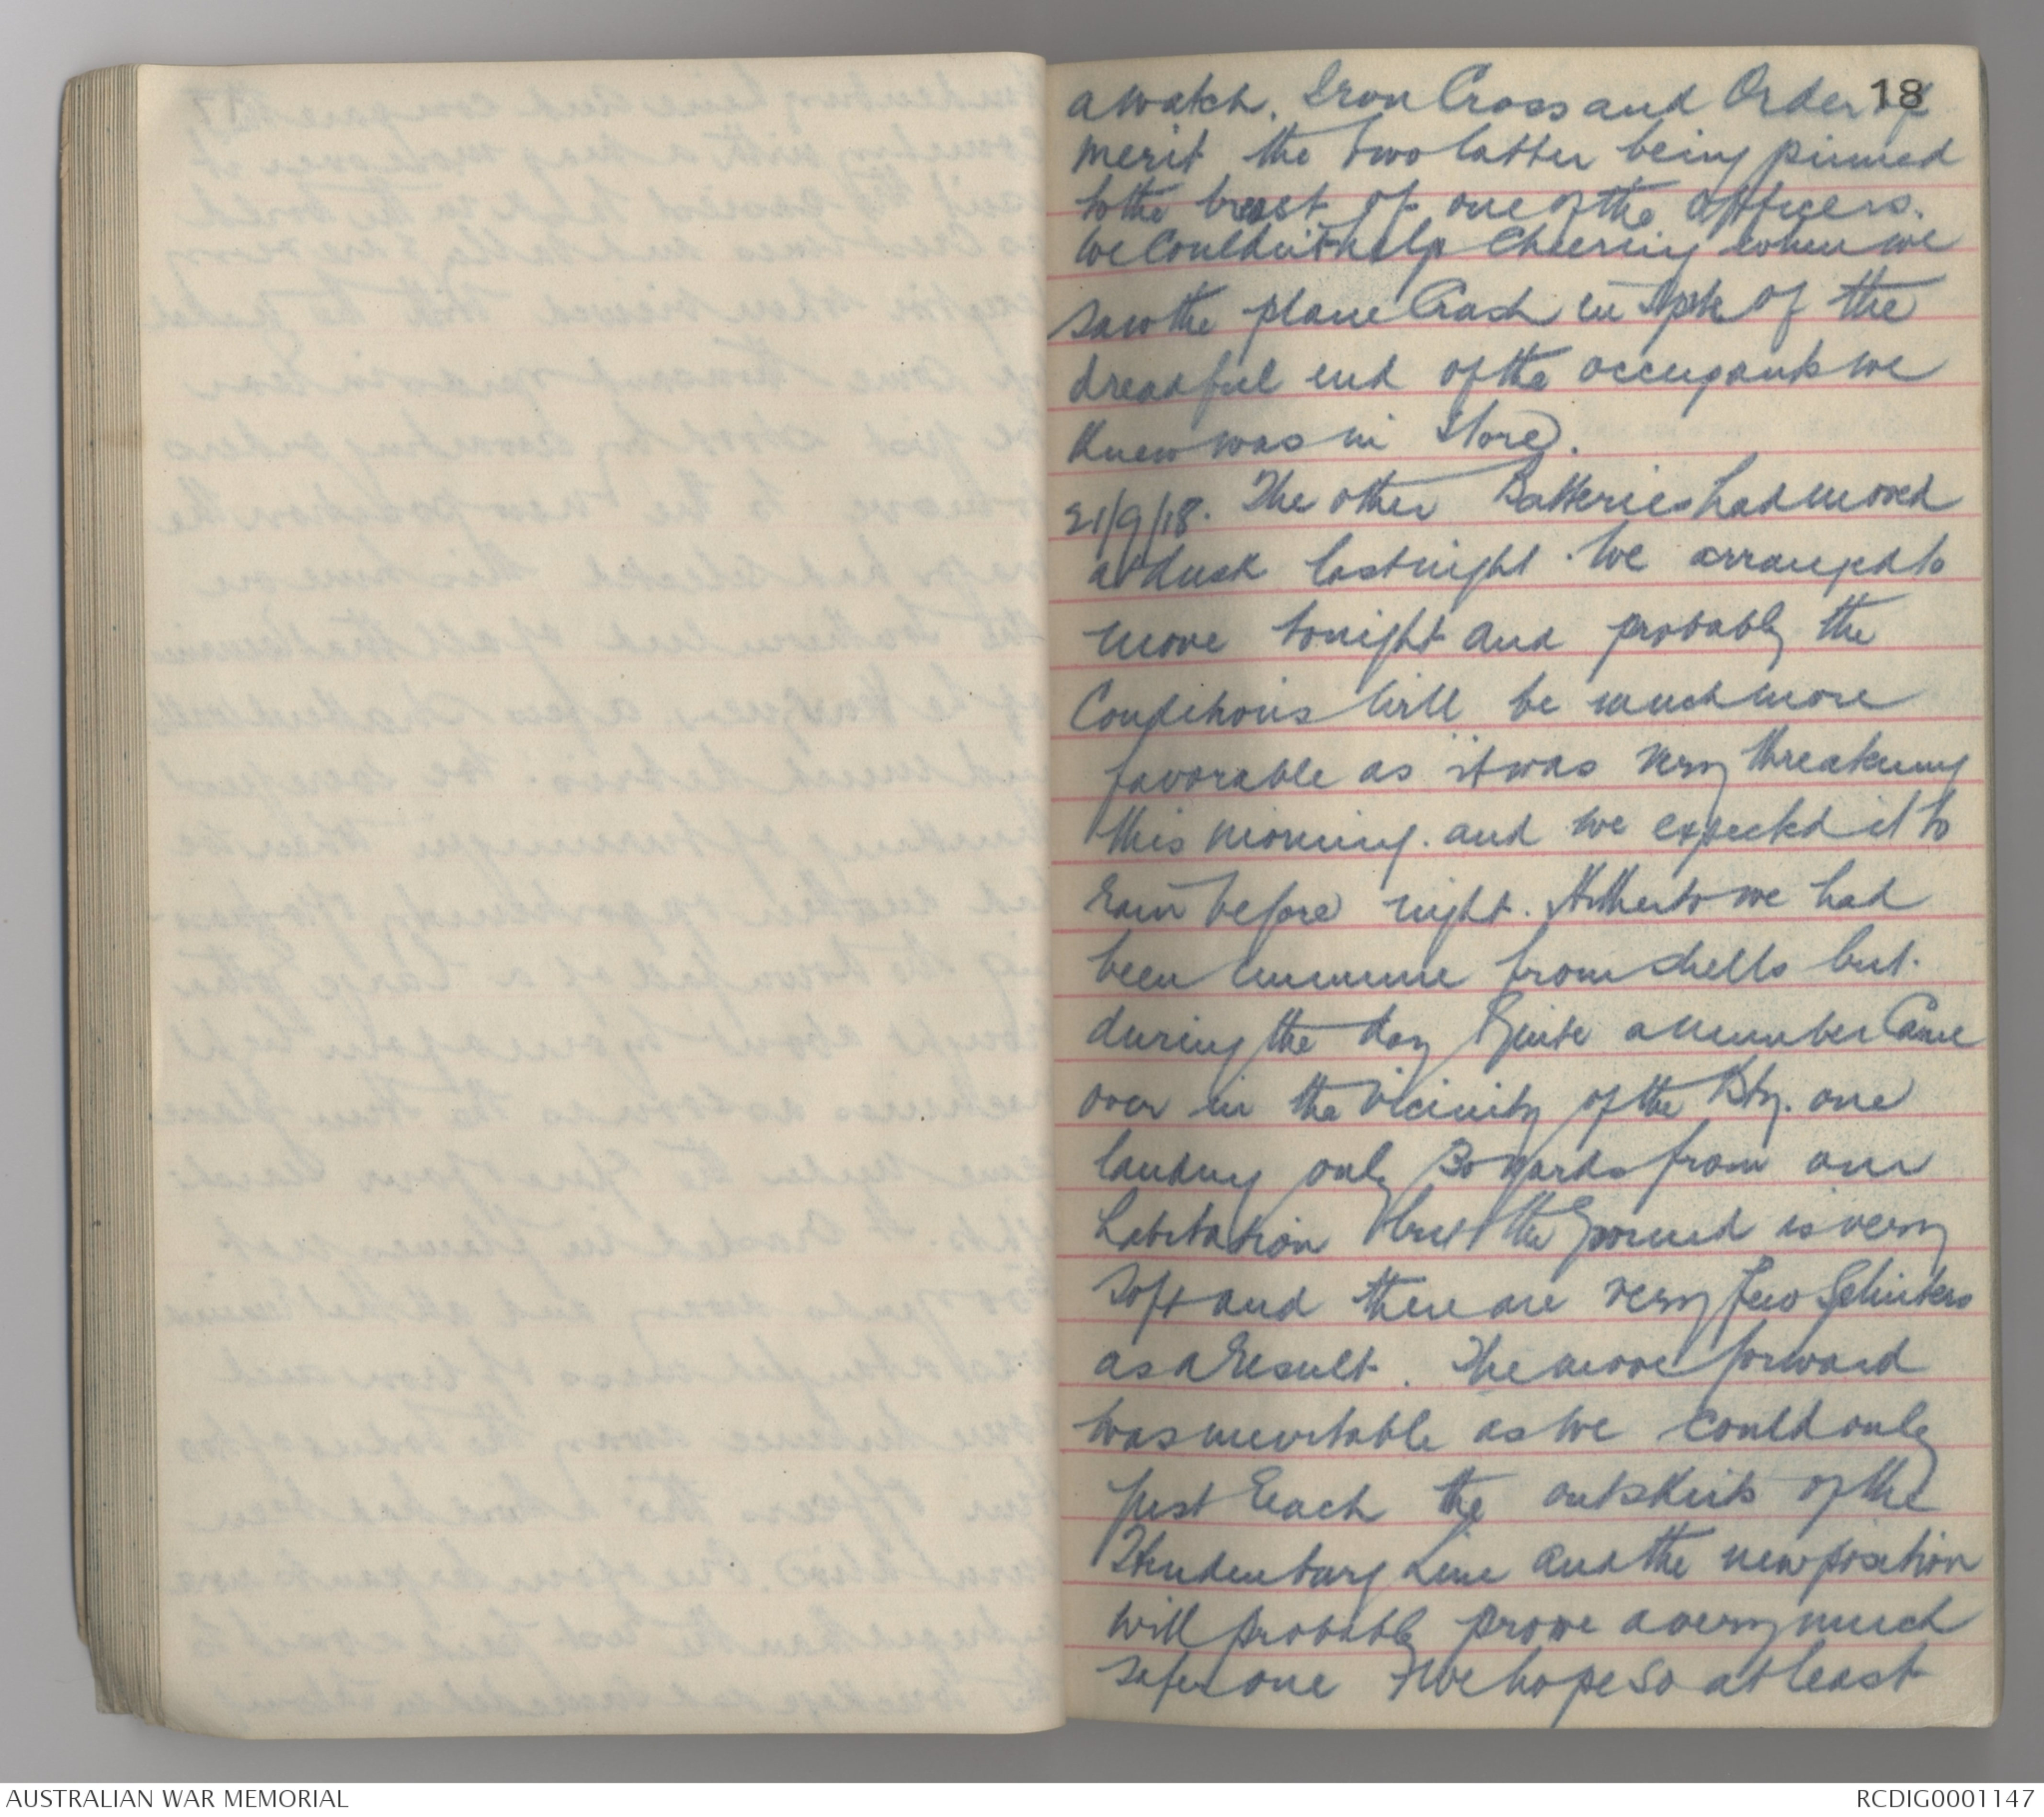 18
a watch. Iron Cross and Order of
merit the two latter being pinned
to the breast of one of the officers.
We couldn't help cheering when we
saw the plane crash in spite of the
dreadful end of the occupants we
knew was in store.
21/9/18. The other Batteries had moved
at dusk last night. We arranged to
move tonight and probably the
Conditions will be much more
favorable as it was very threatening
this morning. and we expected it to
rain before night. Hitherto we had
been immune from shells but.
during the day quite a number came
over in the vicinity of the Bty. one
landing only 30 yards from our
habitation but the ground is very
soft and there are very few splinters
as a result. The move forward
was inevitable as we could only
just reach the outskirts of the
Hindenburg Line and the new position
will probably prove a very much
safer one & we hope so at least
AUSTRALIAN WAR MEMORIAL
RCDIG0001147